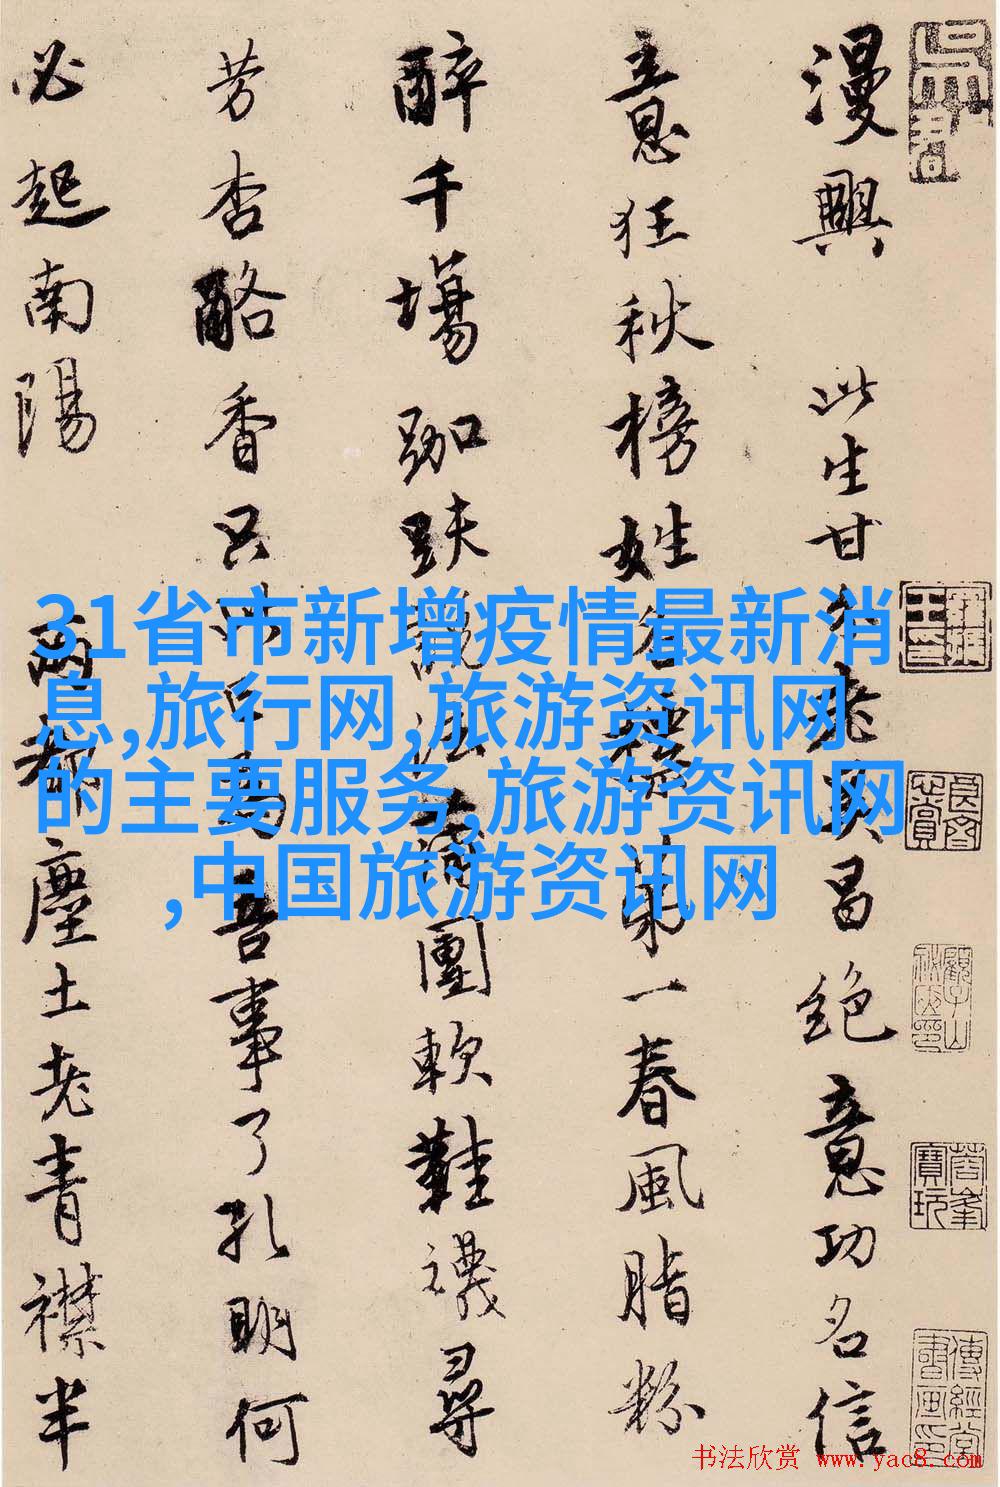 漫興 此生甘分老吳昌絕意功名信
意狂秋榜姓名第一春風脂粉
醉千場跏趺說法蒲團軟鞋襪尋
芳杏酪香只為吾事了孔明何
必起南陽 兩都塵土老青襟半
31省市新增疫情最新消
息,旅行网,旅游资讯网
的主要服务,旅游资讯网
,中国旅游资讯网
书法欣赏 www.yac8.com